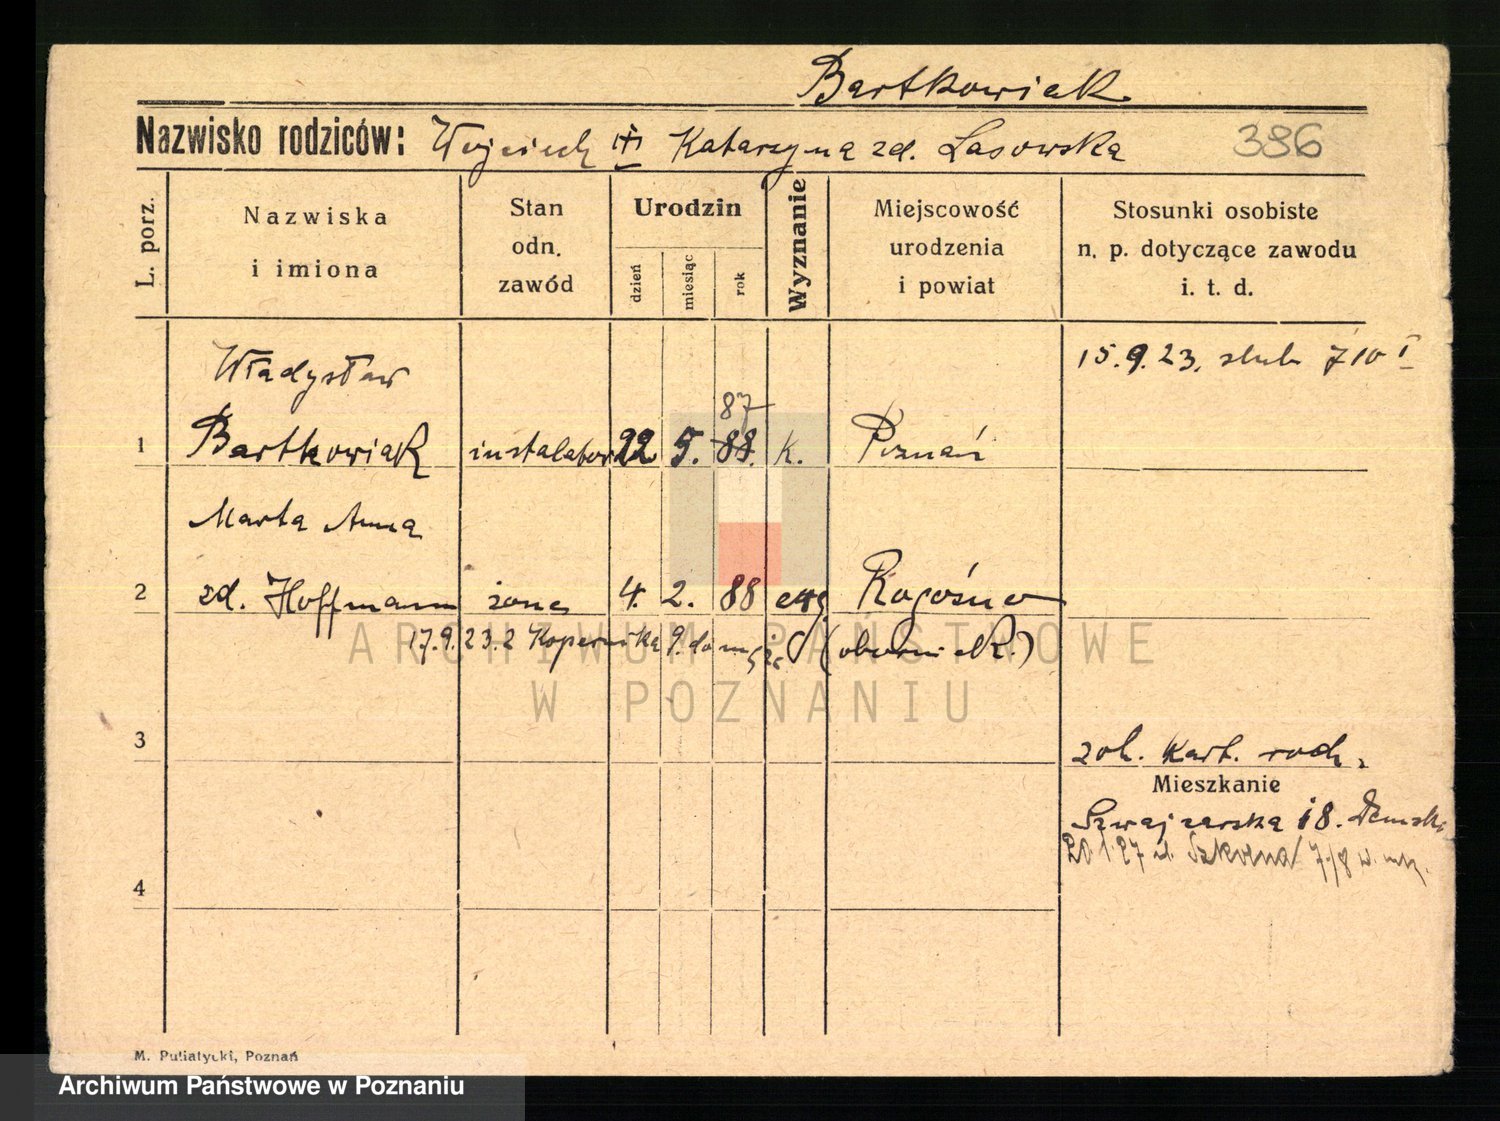 Bartkowiak
Nazwisko rodziców: Wojciech Katarzyna zd. Lasowska 386
L. porz.
Nazwiska i imiona
Stan odn. zawód
Urodzin
dzień
miesiąc
rok
Wyznanie
Miejscowość urodzenia i powiat
Stosunki osobiste n. p. dotyczące zawodu i. t. d.
Władysław
15.9.23. ślub 710 I
87
1 Bartkowiak instalator 22 5. 88. k. Poznań
Marta Anna
2 zd. Hoffmann żona 4. 2. 88 ewg. Rogoźno
17.9.23. z Kopernika 9. do męża (obornick.)
3
zob. Kart. rodz.
Mieszkanie
Szwajcarska 18.
20 1 27 Szkolna 7/8
4
M. Putiatycki, Poznań
ARCHIWUM PAŃSTWOWE
W POZNANIU
Archiwum Państwowe w Poznaniu